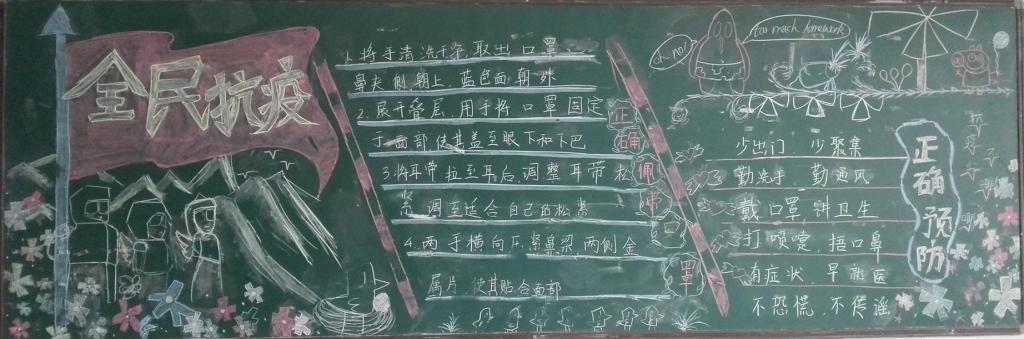 全民抗疫
1.将手清洗干净,取出口罩,
鼻夹侧朝上,蓝色面朝外
2.展开叠层,用手将口罩固定
于面部使其盖至眼下和下巴
3.将耳带拉至耳后,调整耳带松
紧,调至适合自己的松紧
4.两手横向压紧鼻梁两侧金
属片,使其贴合面部
正确佩带口罩
oh no!
too much homework
少出门 少聚集
勤洗手 勤通风
戴口罩 讲卫生
打喷嚏 捂口鼻
有症状 早就医
不恐慌 不传谣
正确预防